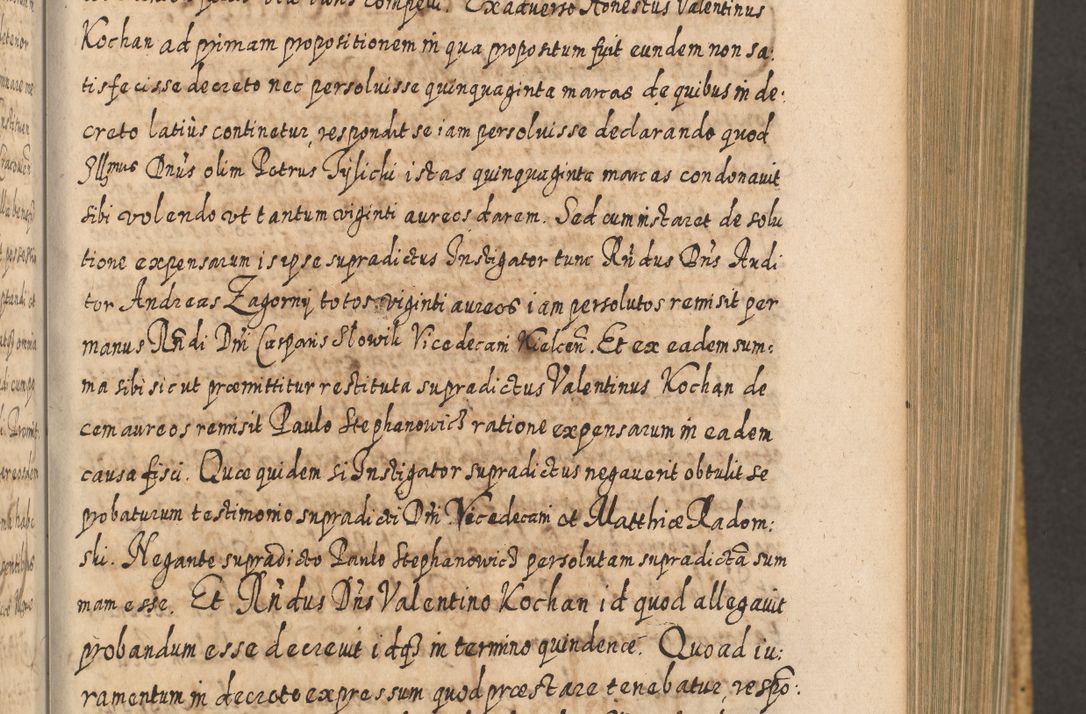 compelli. Ex adverso Honestus Valentinus
Kochan ad primam propositionem in qua propositum fuit eundem non sa:
tisfecisse decreto nec persoluisse quinquaginta marcas de quibus in de:
creto latius continetur, respondit se iam persoluisse declarando quod
Illmus Dnus olim Petrus Tylichi istas quinquaginta marcas condonauit
sibi volendo vt tantum viginti aureos darem. Sed cum instaret de solu
tione expensarum is ipse supradictus Instigator tunc Rndus Dns Audi
tor Andreas Zagorny totos viginti aureos iam persolutos remisit per
manus Rndi Dni Casparis Slowik Vicedecani Kielcen. Et ex eadem sum:
ma sibi sicut præmittitur restituta supradictus Valentinus Kochan de
cem aureos remisit Paulo Stephanowicz ratione expensarum in eadem
causa fisci. Quæ quidem si Instigator supradictus negauerit obtulit se
probaturum testimonio supradicti Dni Vicedecani et Matthiæ Radom:
ski. Negante supradicto Paulo Stephanowicz persolutam supradictã sum
mam esse. Et Rndus Dns Valentino Kochan id quod allegauit
probandum esse decreuit idq3 in termino quindenæ. Quo ad iu:
ramentum in decreto expressum quod præstare tenebatur, respo: